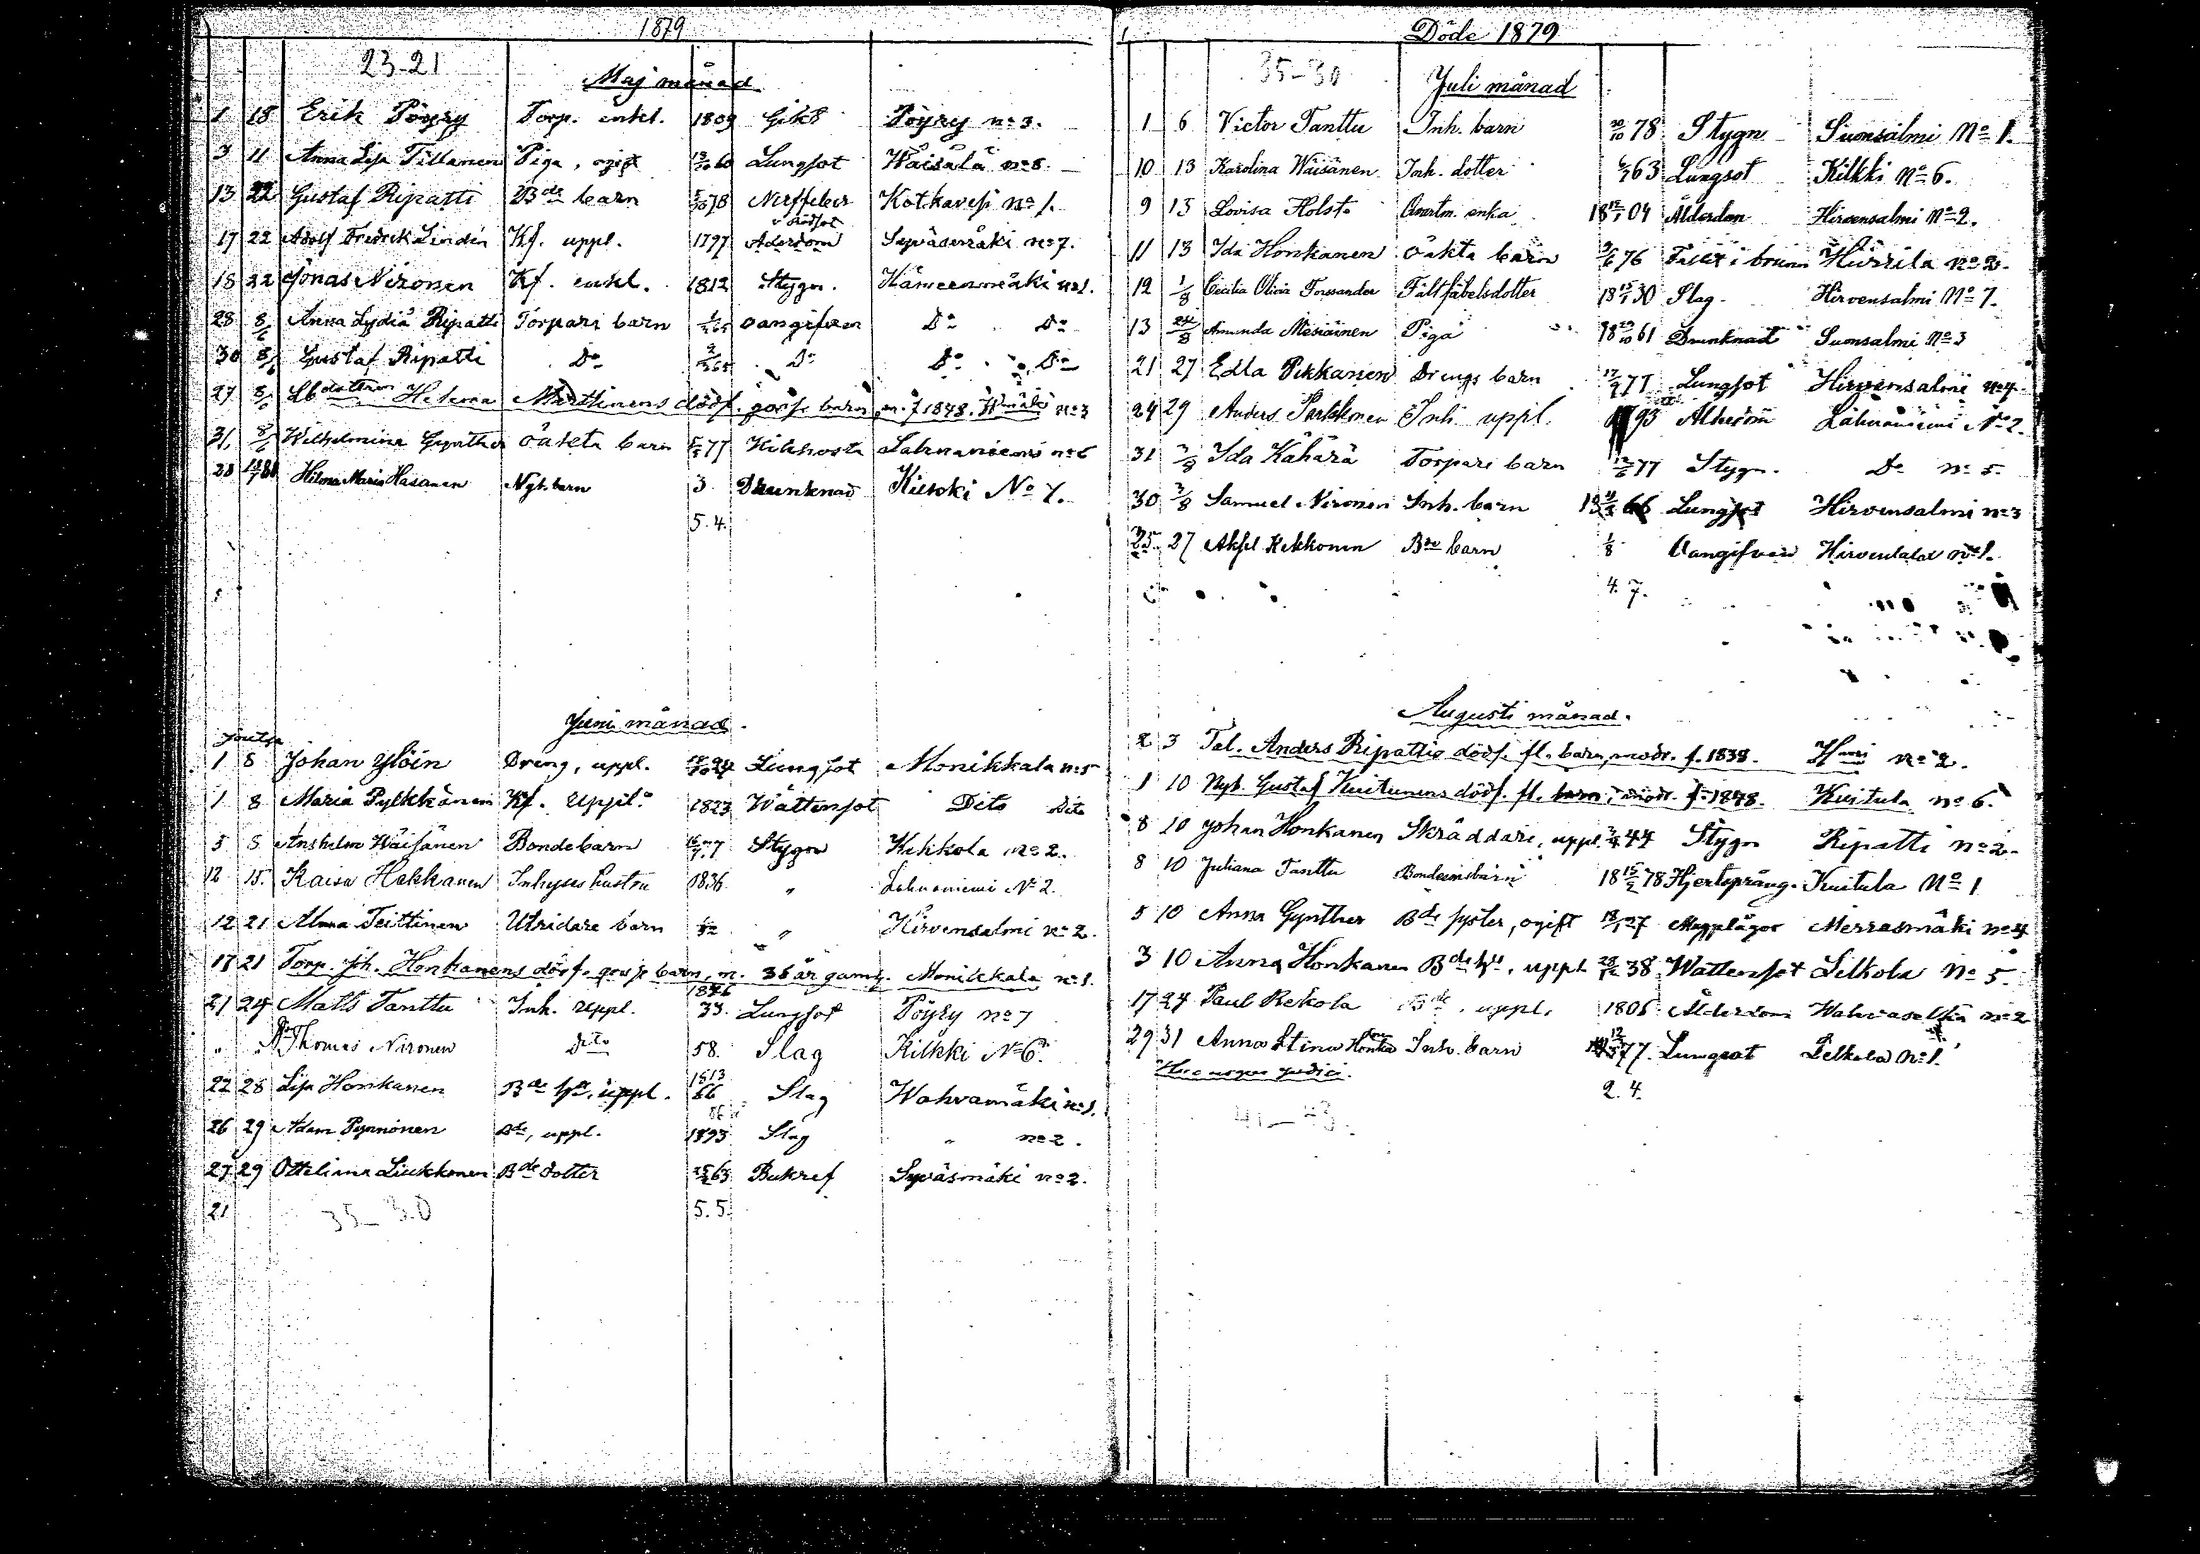 1879
23-21
Maj månad
1 18 Erik Pöyry Torp. enkl. 1809 Gikt Pöyry No 3.
3 11 Anna Lisa Tillanen Piga, ogift 60 Lungsot Wäisälä No 8.
13 22 Gustaf Ripatti Bde barn 78 Kotkavesi No 1.
17 22 Adolf Fredrik Lindén Kf. uppl. 1797 Syväsmäki No 7.
18 22 Jonas Nironen Kf. enkl. 1812 Stygn. Hämeenmäki No 1.
28 8/6 Anna Lydia Ripatti Torpars barn oangifven Do Do
30 8/6 Gustaf Ripatti Do Do Do Do
27 8/6 Helena Marttinens dödf. gosse barn, m. f. 1848. No 3
31 8/6 Wilhelmina Gynther oäkta barn 77 Kikhosta Lahnaniemi No 6
28 Hilma Maria Hasanen Ngb. barn 3 Drunknad Kiesoki No 7.
5. 4.
Juni månad.
1 8 Johan Ylöin Dreng, uppl. 24 Lungsot Monikkala No 5
1 8 Maria Pylkkänen Kf. Uppl. 1823 Wattensot Dito Dito
5 8 Anshelm Wäisänen Bondebarn Stygn Kekkola No 2.
12 15. Kaisa Hakkanen Inhyses hustru 1836. " Lahnaniemi No 2.
12 21 Alma Teittinen Utridare barn " Hirvensalmi No 2.
17 21 Torp. Joh. Honkanens dödf. gosse barn, m. 36 år gaml. Monikkala No 1.
21 24 Matts Tanttu Inh. uppl. 1846 33. Lungsot Pöyry No 7
" " Thomas Nironen Dito 58. Slag Kilkki No 6.
22 28 Lisa Honkanen Bde hu, uppl. 1813 66 Slag Wahvamäki No 1.
26 29 Adam Pynnönen Bde, uppl. 1893 Slag " No 2.
27 29 Otteliana Liukkonen Bde dotter 63 Bukref Syväsmäki No 2.
21 35-30 5. 5.
Döde 1879
35-30
Juli månad
1 6 Victor Tanttu Inh. barn 78 Stygn Suonsalmi No 1.
10 13 Karolina Wäisänen Inh. dotter 63 Lungsot Kilkki No 6.
9 13 Lovisa Holst enka 04 Ålderdom Hirvensalmi No 2.
11 13 Ida Honkanen oäkta barn 76 Fallit i brunn Hurrila No 2.
12 1/8 Cecilia Olivia Forssander Fältfäbelsdotter 30 Slag. Hirvensalmi No 7.
13 24/8 Amanda Mesiäinen Piga 61 Drunknad Suonsalmi No 3
21 27 Edla Pekkanen Drengs barn 77 Lungsot Hirvensalmi No 4
24 29 Anders Parkkonen Inh. uppl. 93 Lahnaniemi No 2.
31 Ida Kähärä Torpare barn 77 Stygn. Do No 5.
30 Samuel Nironen Inh. barn 66 Lungsot Hirvensalmi No 3
25. 27 Aksel Kekkonen Bde barn Oangifven Hirvenlaks No 1.
4. 7.
Augusti månad.
2 3 Tal. Anders Ripattis dödf. fl. barn, modr. f. 1838. No 2.
1 10 Nyb. Gustaf Kuitunens dödf. fl. barn, modr. f. 1848. Kuitula No 6.
8 10 Johan Honkanen Skräddare, uppl. 44 Stygn Ripatti No 2.
8 10 Juliana Tanttu 78 Hjertspräng. Kuitula No 1
5 10 Anna Gynther Bde syster, ogift 27 Magplågor Merrasmäki No 4
3 10 Anna Honkanen Bde hu, uppl. 38 Wattensot Lelkola No 5.
17 24 Paul Rekola Bde, uppl. 1806 Ålderdom Wahvaselkä No 2
29 31 Anna Stina Inh. barn 77. Lungsot Lelkola No 1.
2. 4.